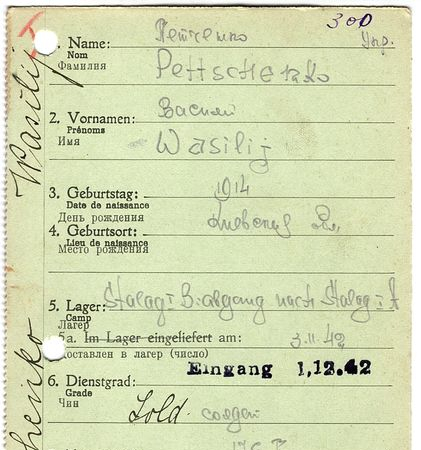 300
Укр.
Петченко
1. Name:
Nom
Фамилия
Pettschenko
Васили
2. Vornamen:
Prénoms
Имя
Wasilij
3. Geburtstag: 1914
Date de naissance
День рождения
4. Geburtsort: Киевская
Lieu de naissance
Место рождения
5. Lager: Stalag I B abgang nach Stalag I A
Camp
Лагерь
5a. Im Lager eingeliefert am: 3.11.42
Доставлен в лагерь (число)
Eingang 1,12.42
6. Dienstgrad:
Grade
Чин
Sold. солдат
Wasilij
henko